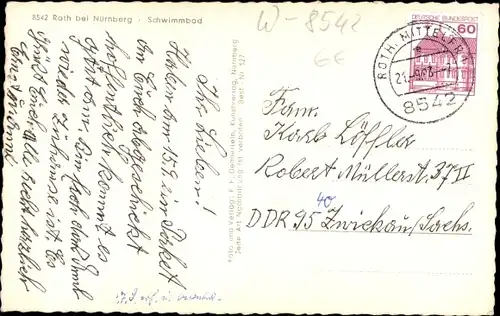 8542 Roth bei Nürnberg · Schwimmbad
W-8542
66
DEUTSCHE BUNDESPOST
60
ROTH, MITTELFR
8542
Ihr Lieben!
Haben am 15.9 ein Paket
an Euch abgeschickt
hoffentlich kommt es
gut an. Bin
wieder Zuhause
Grüßt Euch alle recht herzlich
Foto und Verlag: Kunstverlag, Nürnberg
Jede Art Nachdruck ist verboten Best.-Nr. 127
Familie
Karl Löffler
Robert Müllerst. 37 II
40
DDR 95 Zwickau/Sachs.